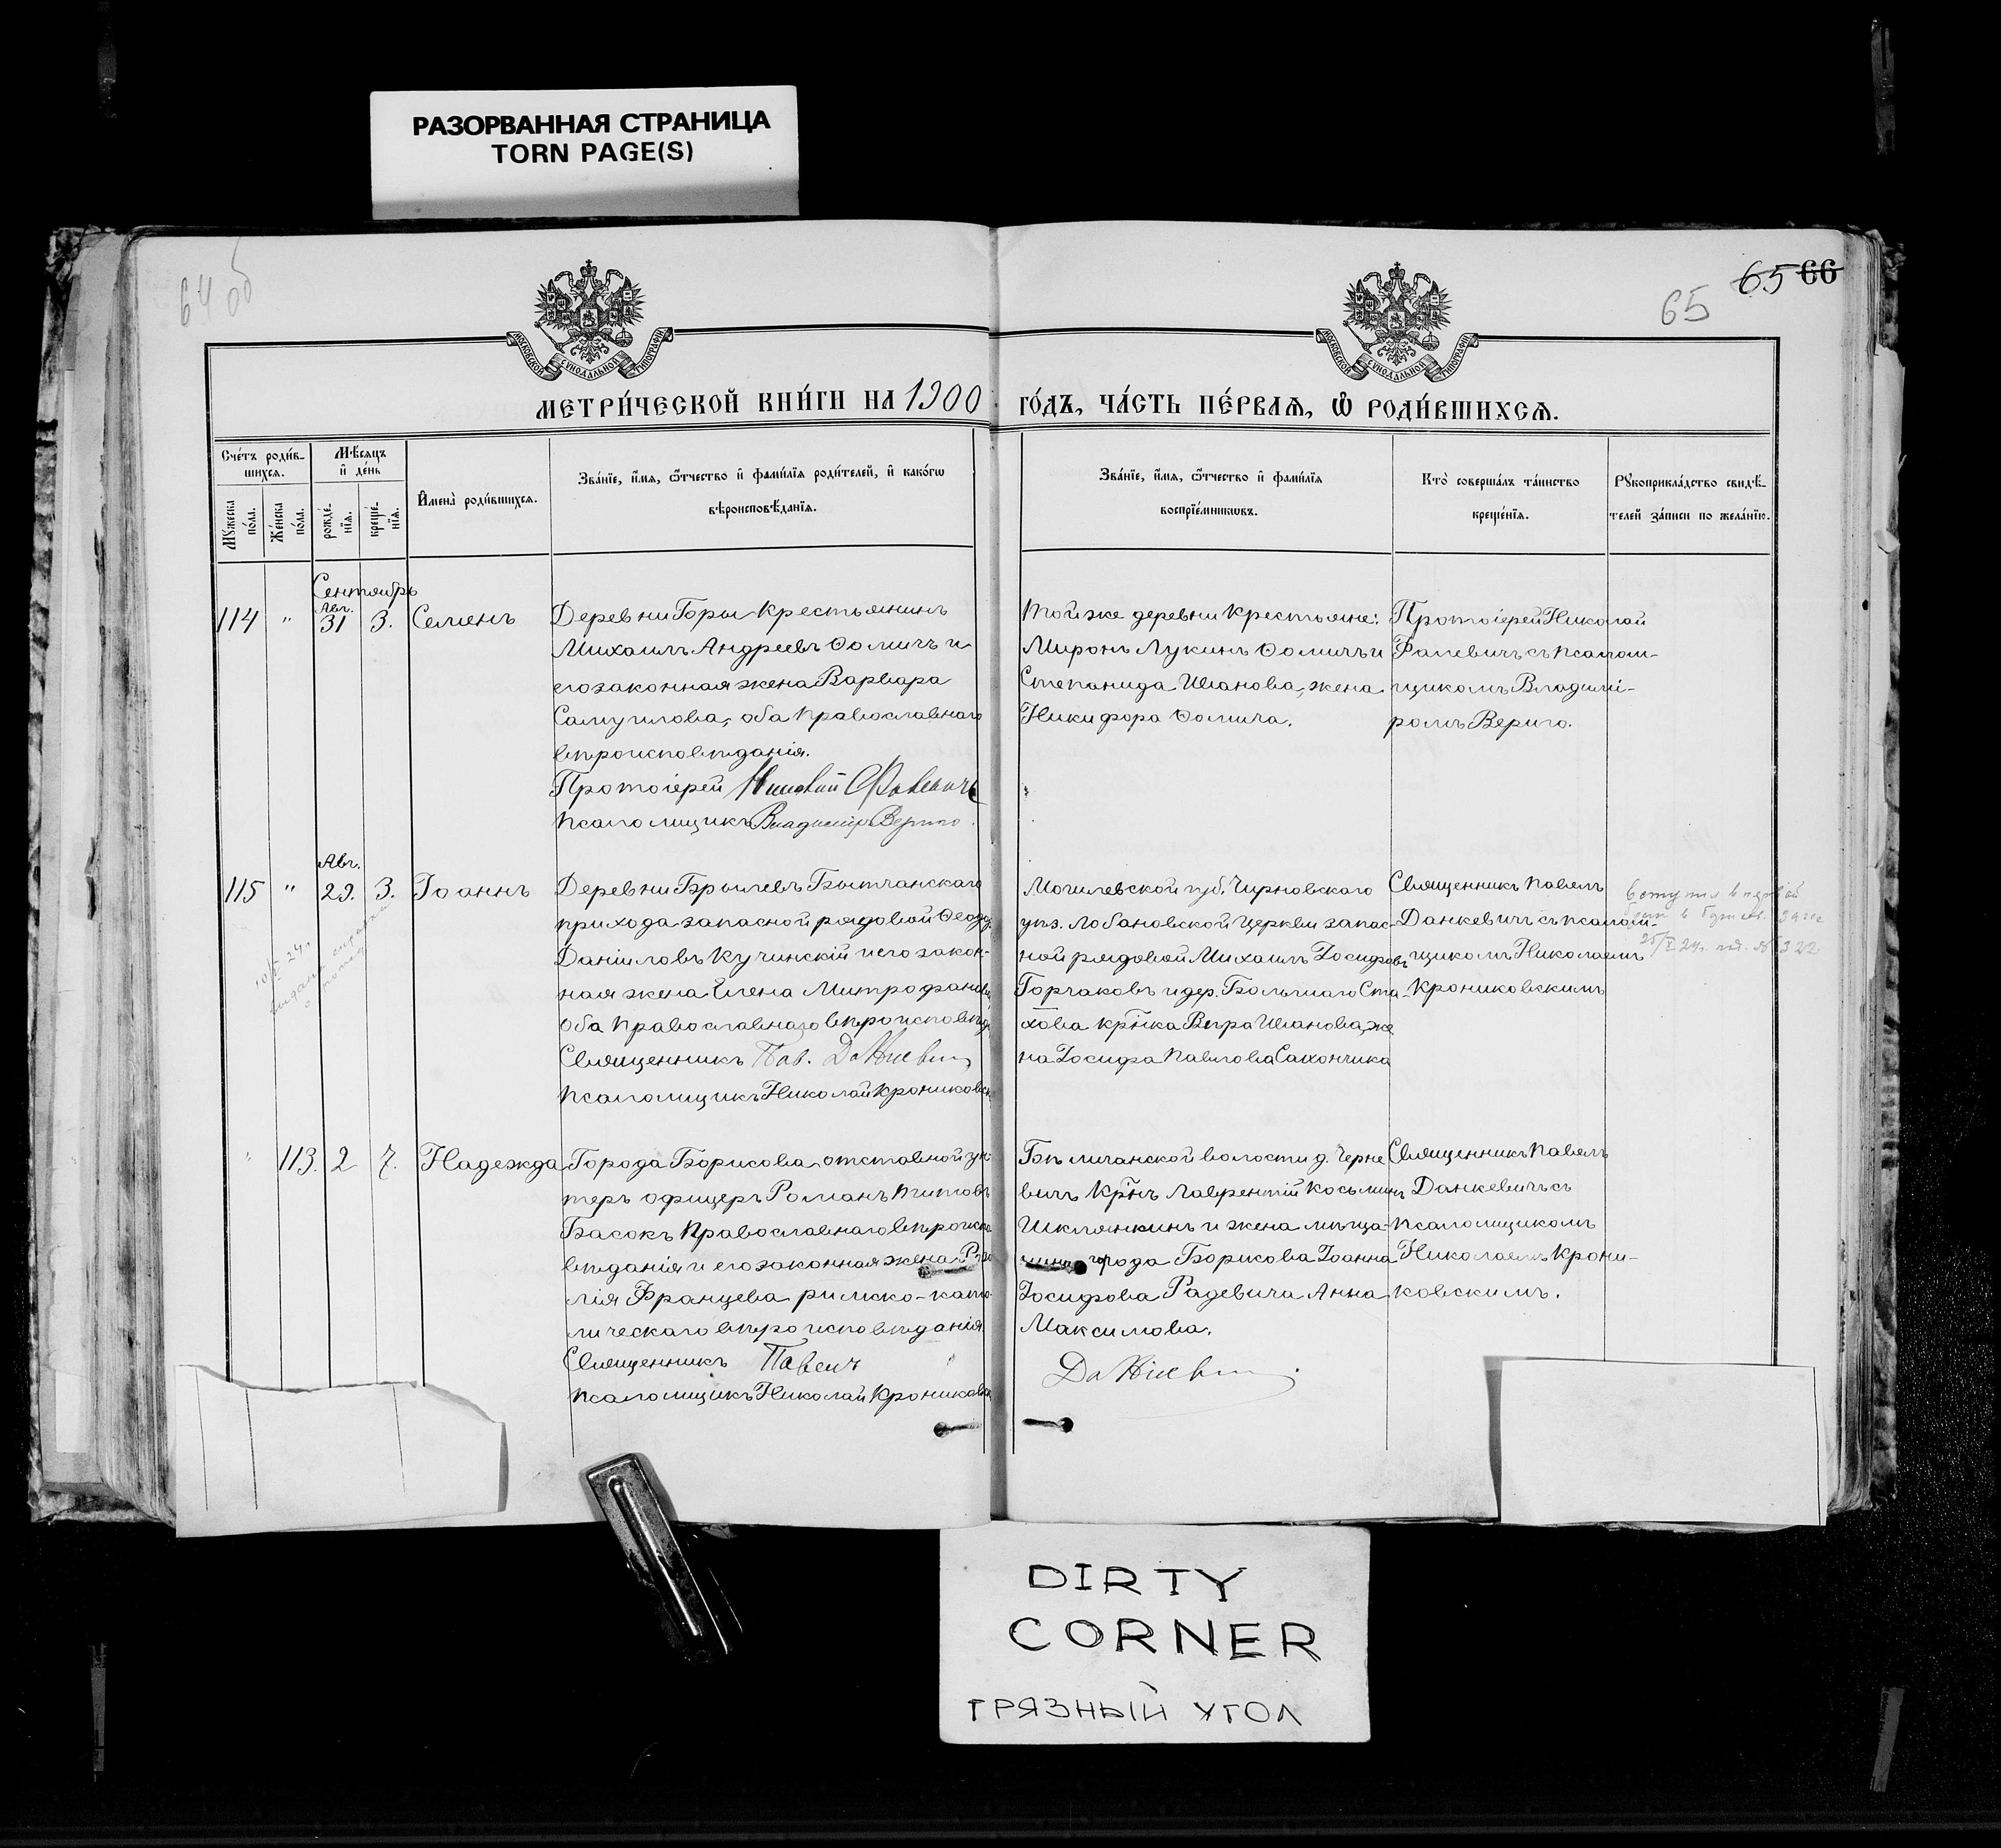 РАЗОРВАННАЯ СТРАНИЦА
TORN PAGE(S)
64 об
65 66
65
МОСКОВСКОЙ СѴНОДАЛЬНОЙ ТИПОГРАФІИ
МОСКОВСКОЙ СѴНОДАЛЬНОЙ ТИПОГРАФІИ
МЕТРИ́ЧЕСКОЙ КНИ́ГИ НА 1900 ГО́ДЪ, ЧА́СТЬ ПЕ́РВАѦ, Ѽ РОДИ́ВШИХСѦ.
Сче́тъ роди́вшихсѧ.
Мꙋжеска по́ла.
Же́нска по́ла.
Мѣ́сѧцъ и҆ де́нь
рожде́нїѧ.
креще́нїѧ.
И҆мена̀ роди́вшихсѧ.
Зва́нїе, и҆́мѧ, ѻ҆́тчество и҆ фами́лїѧ роди́телей, и҆ како́гѡ
вѣроисповѣ́данїѧ.
Зва́нїе, и҆́мѧ, ѻ҆́тчество и҆ фами́лїѧ
воспрїе́мникѡвъ.
Кто̀ соверша́лъ та́инство
креще́нїѧ.
Рꙋкоприкла́дство свидѣ́-
телей за́писи по жела́нїю.
Сентябрь
114 " Авг. 31 3. Семенъ
Деревни Горы крестьянинъ
Михаилъ Андреевъ Ѳомичъ и
его законная жена Варвара
Самуилова, оба православнаго
вѣроисповѣданія.
Протоіерей Николай Фалевичъ
Псаломщикъ Владиміръ Вериго.
Той же деревни крестьяне:
Миронъ Лукинъ Ѳомичъ и
Степанида Иванова, жена
Никифора Ѳомича.
Протоіерей Николай
Фалевичъ съ псалом-
щикомъ Владимі-
ромъ Вериго.
115 " Авг. 29. 3. Іоаннъ
Деревни Брылевъ Бытчанскаго
прихода запасной рядовой Ѳеодор.
Даніиловъ Кучинскій и его закон-
ная жена Елена Митрофанова,
оба православнаго вѣроисповѣд.
Священникъ Пав. Данкевичъ
Псаломщикъ Николай Крониковск
Могилевской губ. Чериковскаго
уѣз. Лобановской церкви запас-
ной рядовой Михаилъ Іосифовъ
Горчаковъ и дер. Большаго Ста-
хова кр-нка Вѣра Иванова, же
на Іосифа Павлова Сахончика
Священникъ Павелъ
Данкевичъ съ псалом-
щикомъ Николаемъ
Крониковскимъ
" 113. 2 7. Надежда
Города Борисова отставной ун-
теръ офицеръ Романъ Титовъ
Басокъ православнаго вѣроиспо
вѣданія и его законная жена Роза
лія Францева римско-като
лическаго вѣроисповѣданія.
Священникъ Павелъ
Псаломщикъ Николай Крониковск
Бѣличанской волости д. Черне
вичъ кр-нъ Лаврентій Косьминъ
Шклянкинъ и жена мѣща-
нина города Борисова Іоанна
Іосифова Радевича Анна
Максимова.
Данкевичъ.
Священникъ Павелъ
Данкевичъ съ
псаломщикомъ
Николаемъ Крони-
ковскимъ.
DIRTY
CORNER
ГРЯЗНЫЙ УГОЛ